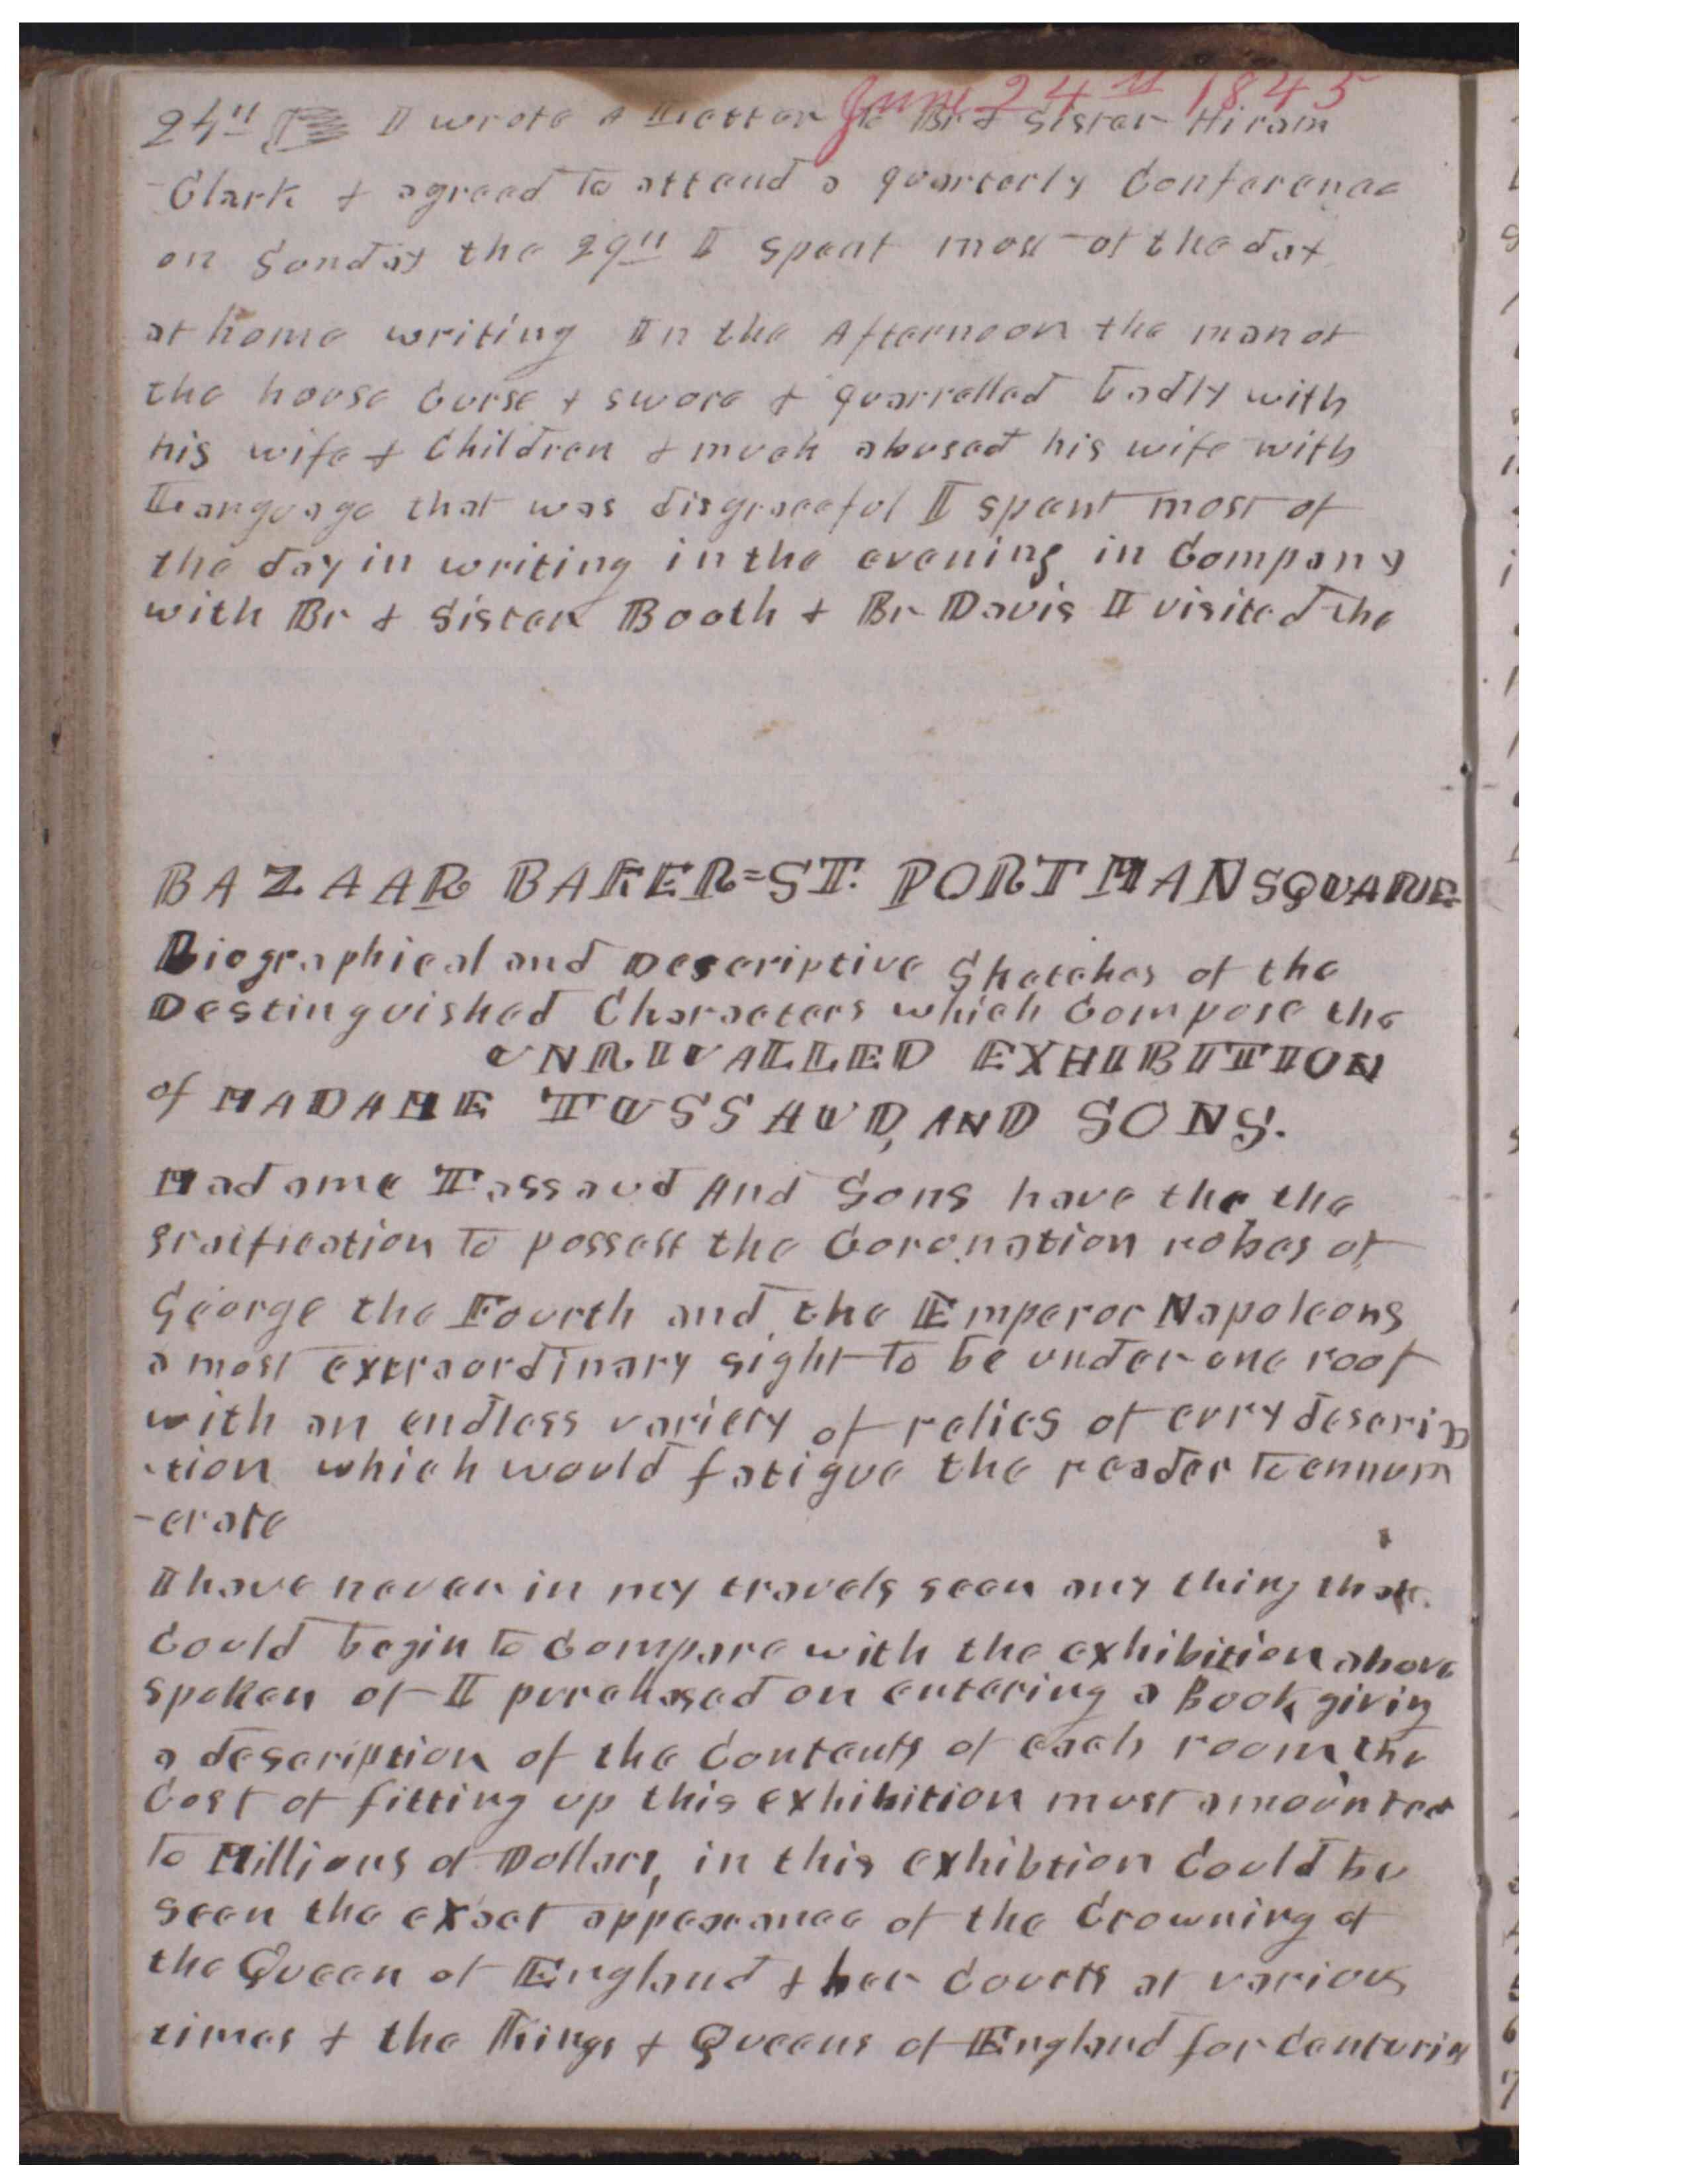 June 24th 1845
24th I wrote A Letter to Br & Sister Hiram
Clark & agreed to attend a quarterly Conference
on Sunday the 29th I spent most of the day
at home writing In the Afternoon the man of
the house Curse & swore & quarrelled badly with
his wife & Children & much abused his wife with
Language that was disgraceful I spent most of
the day in writing in the evening in Company
with Br & Sister Booth & Br Davis I visited the
BAZAAR BAKER=ST. PORTMAN SQUARE
Biographical and Descriptive Sketches of the
Destinguished Characters which Compose the
UNRIVALLED EXHIBITION
of MADAME TUSSAUD, AND SONS.
Madame Tassaud And Sons have the the
graification to possess the Coronation robes of
George the Fourth and the Emperor Napoleons
a most extraordinary sight to be under one roof
with an endless variety of relics of evry descrip
-tion which would fatigue the reader to ennum
-erate
I have never in my travels seen any thing that
Could begin to Compare with the exhibition above
spoken of I purchased on entering a Book giving
a description of the Contents of each room the
Cost of fitting up this exhibition must amounted
to Millions of Dollars, in this exhibtion Could be
seen the exact appearance of the Crowning of
the Queen of England & her Courts at various
times & the Kings & Queens of England for Centuries